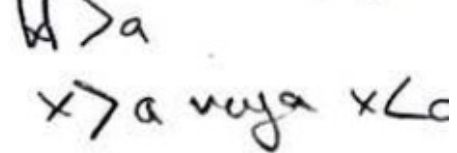 |x| >a
x>a veya x<